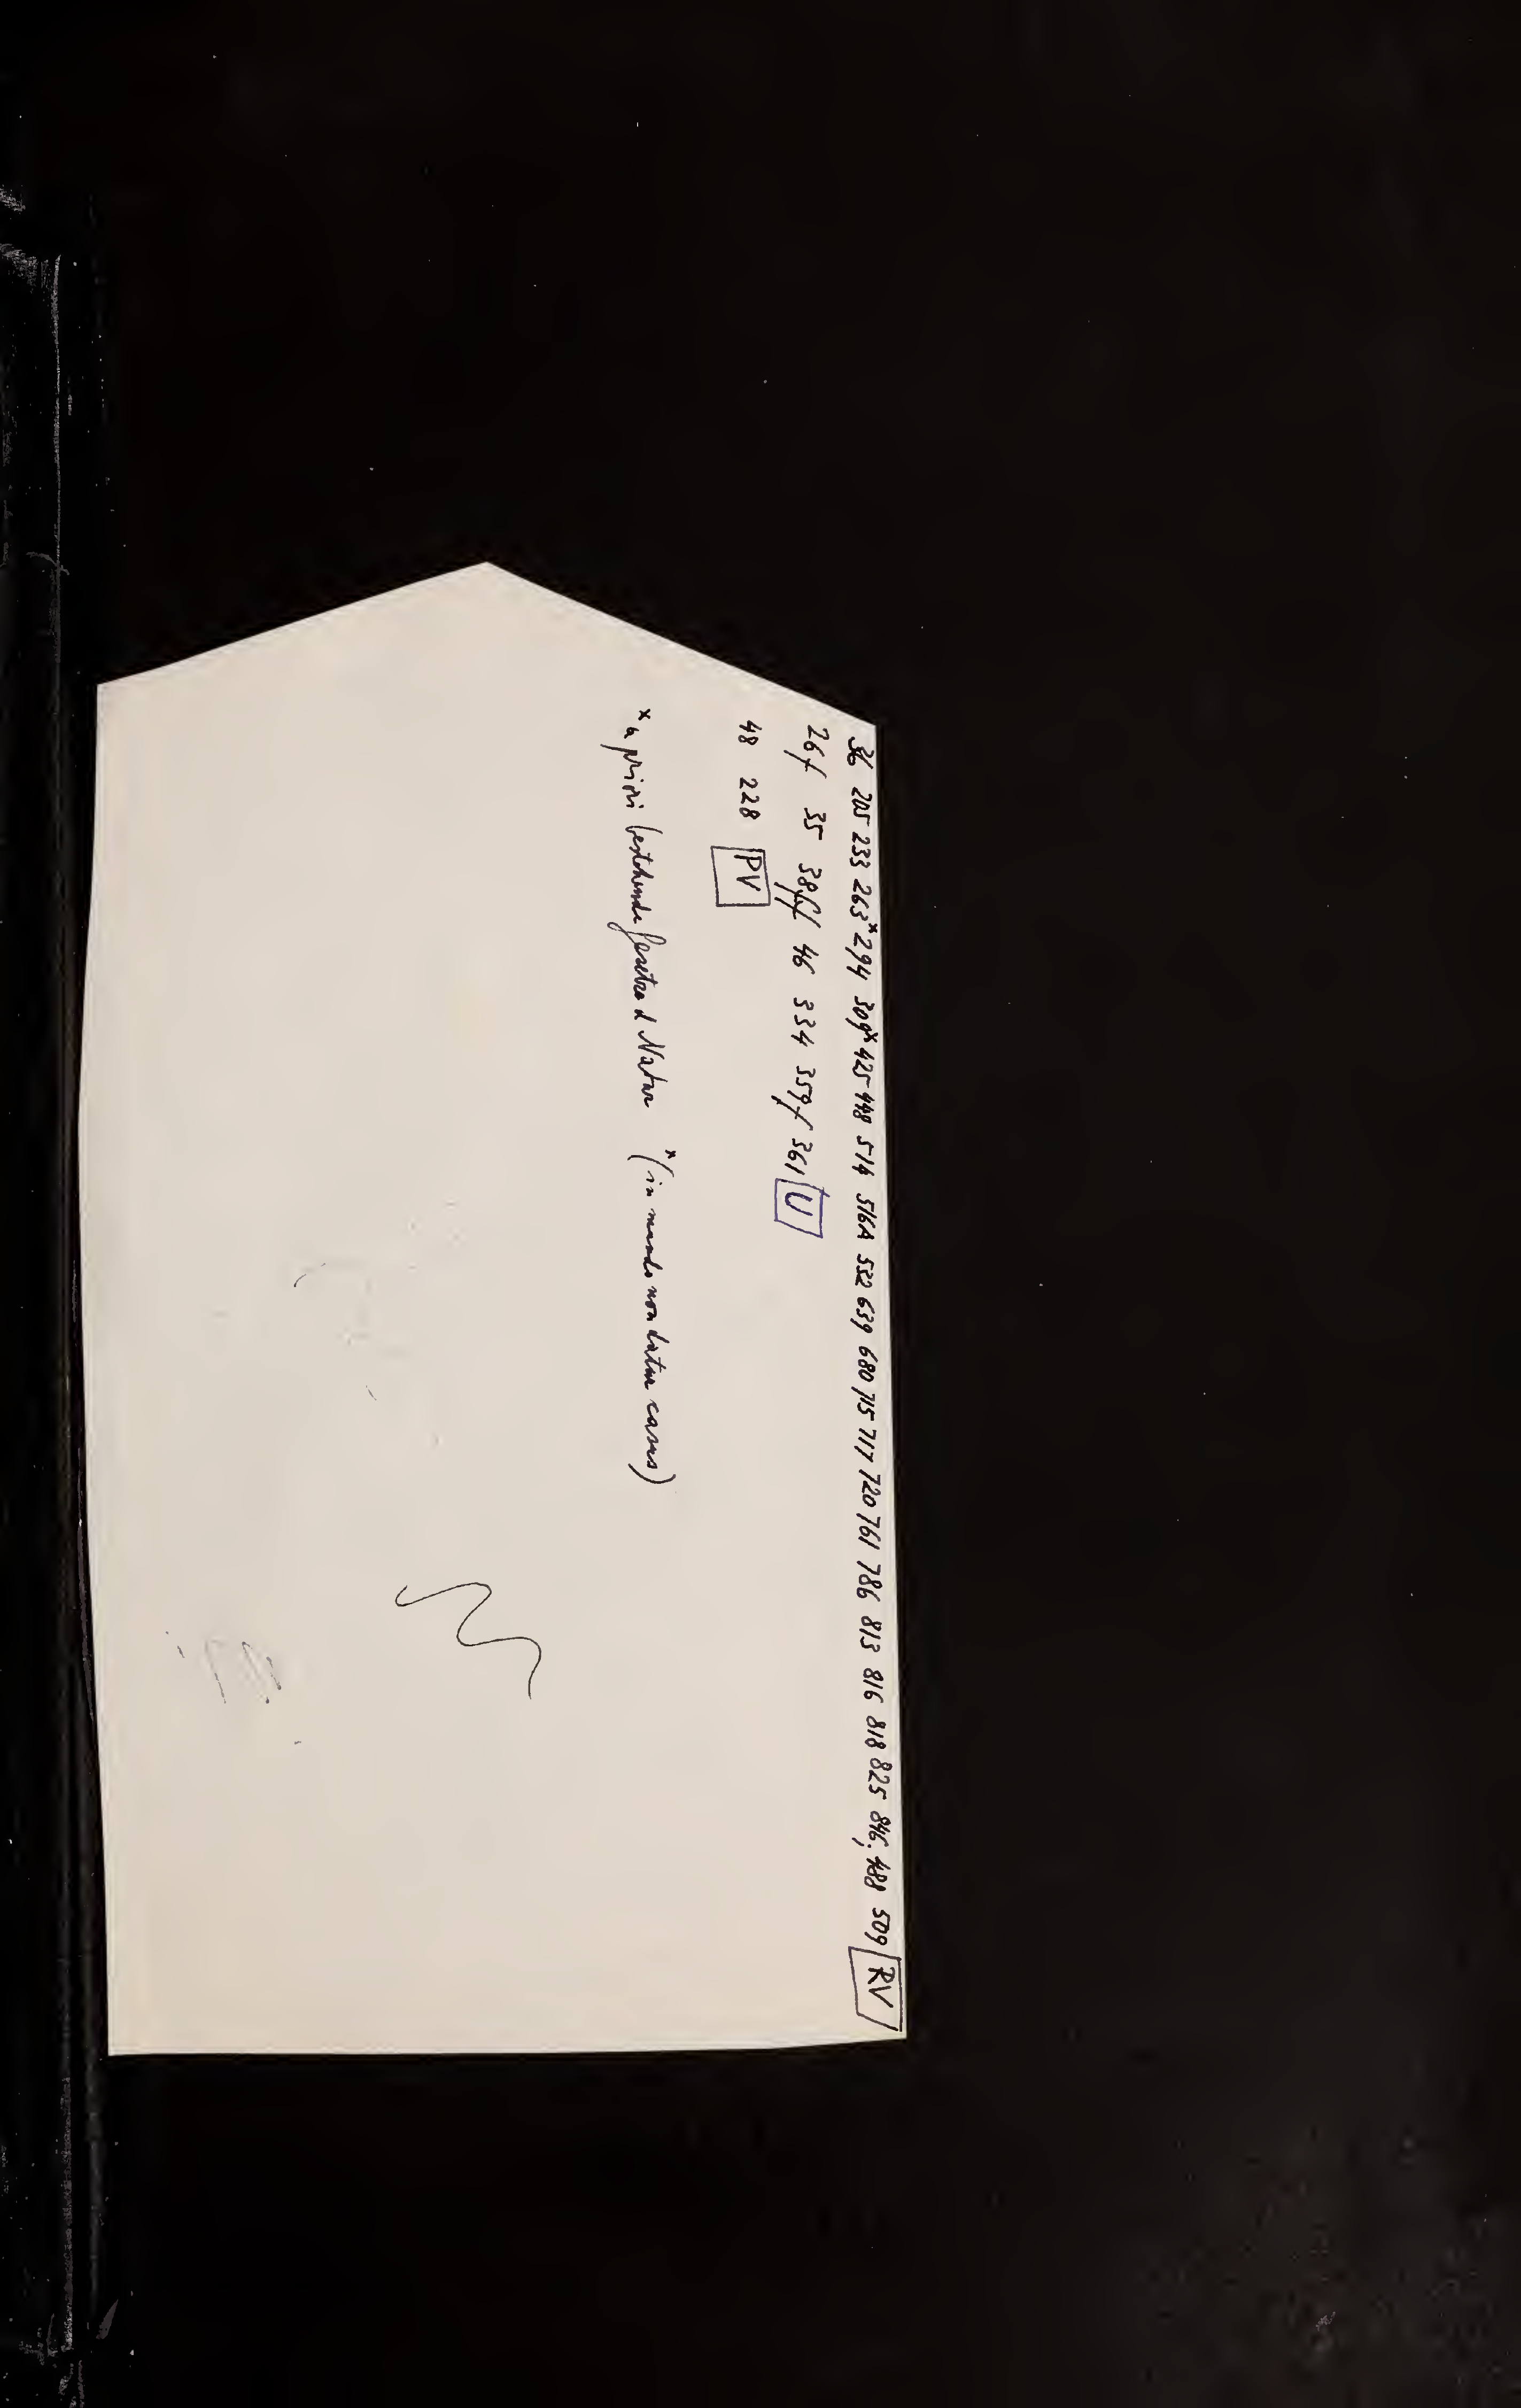 36 205 233 263* 294 309* 425 448 514 516A 552 639 680 715 717 720 761 786 813 816 818 825 846; 488 509 RV
26f 35 38ff 46 334 359f 361 U
48 228 PV
* a priori bestehende Gesetze d Natur * (in mundo non datur casus)